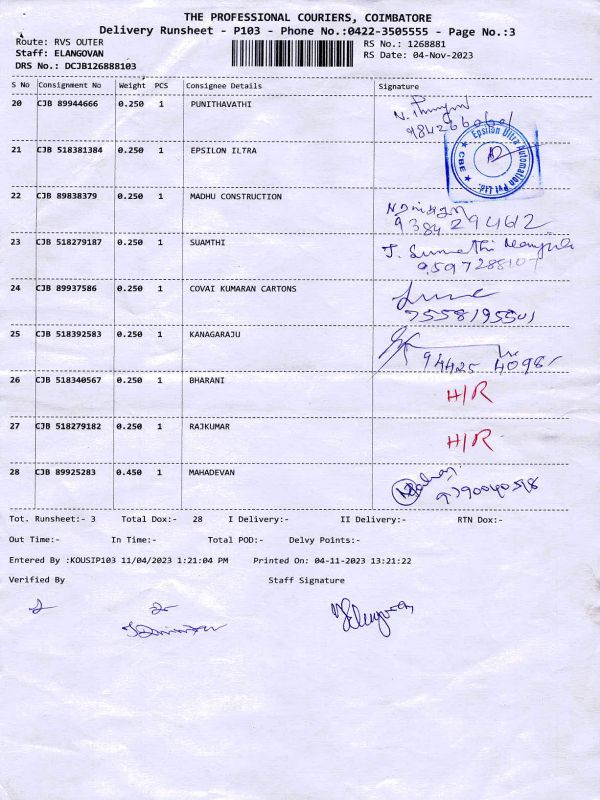 THE PROFESSIONAL COURIERS, COIMBATORE
Delivery Runsheet - P103 - Phone No.:0422-3505555 - Page No.:3
Route: RVS OUTER
RS No.: 1268881
Staff: ELANGOVAN
RS Date: 04-Nov-2023
DRS No.: DCJB126888103
S No Consignment No Weight PCS Consignee Details Signature
20 CJB 89944666 0.250 1 PUNITHAVATHI
21 CJB 518381384 0.250 1 EPSILON ILTRA
Epsilon Ultra Automation Pvt Ltd.
★ CBE ★
22 CJB 89838379 0.250 1 MADHU CONSTRUCTION
9384294612
23 CJB 518279187 0.250 1 SUAMTHI
J. Sumathi
24 CJB 89937586 0.250 1 COVAI KUMARAN CARTONS
7558195501
25 CJB 518392583 0.250 1 KANAGARAJU
94425 4098
26 CJB 518340567 0.250 1 BHARANI H/R
27 CJB 518279182 0.250 1 RAJKUMAR H/R
28 CJB 89925283 0.450 1 MAHADEVAN
Tot. Runsheet:- 3 Total Dox:- 28 I Delivery:- II Delivery:- RTN Dox:-
Out Time:- In Time:- Total POD:- Delvy Points:-
Entered By :KOUSIP103 11/04/2023 1:21:04 PM Printed On: 04-11-2023 13:21:22
Verified By Staff Signature
Elangovan